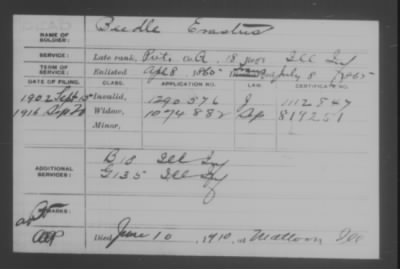 NAME OF SOLDIER: Beedle Erastus
SERVICE: Late rank, Pvt. Co. A. 18 Regt Ill Inf
TERM OF SERVICE: Enlisted Apl 8, 1865 July 8 1865
DATE OF FILING. CLASS. APPLICATION NO. LAW. CERTIFICATE NO.
1902 Sept 15 Invalid, 1290.576 J 1112847
1916 Widow, 1074.882 819251
Minor,
ADDITIONAL SERVICES: B 13 Ill Inf
G 135 Ill Inf
REMARKS:
Died June 10, 1910, at Mattoon Ill